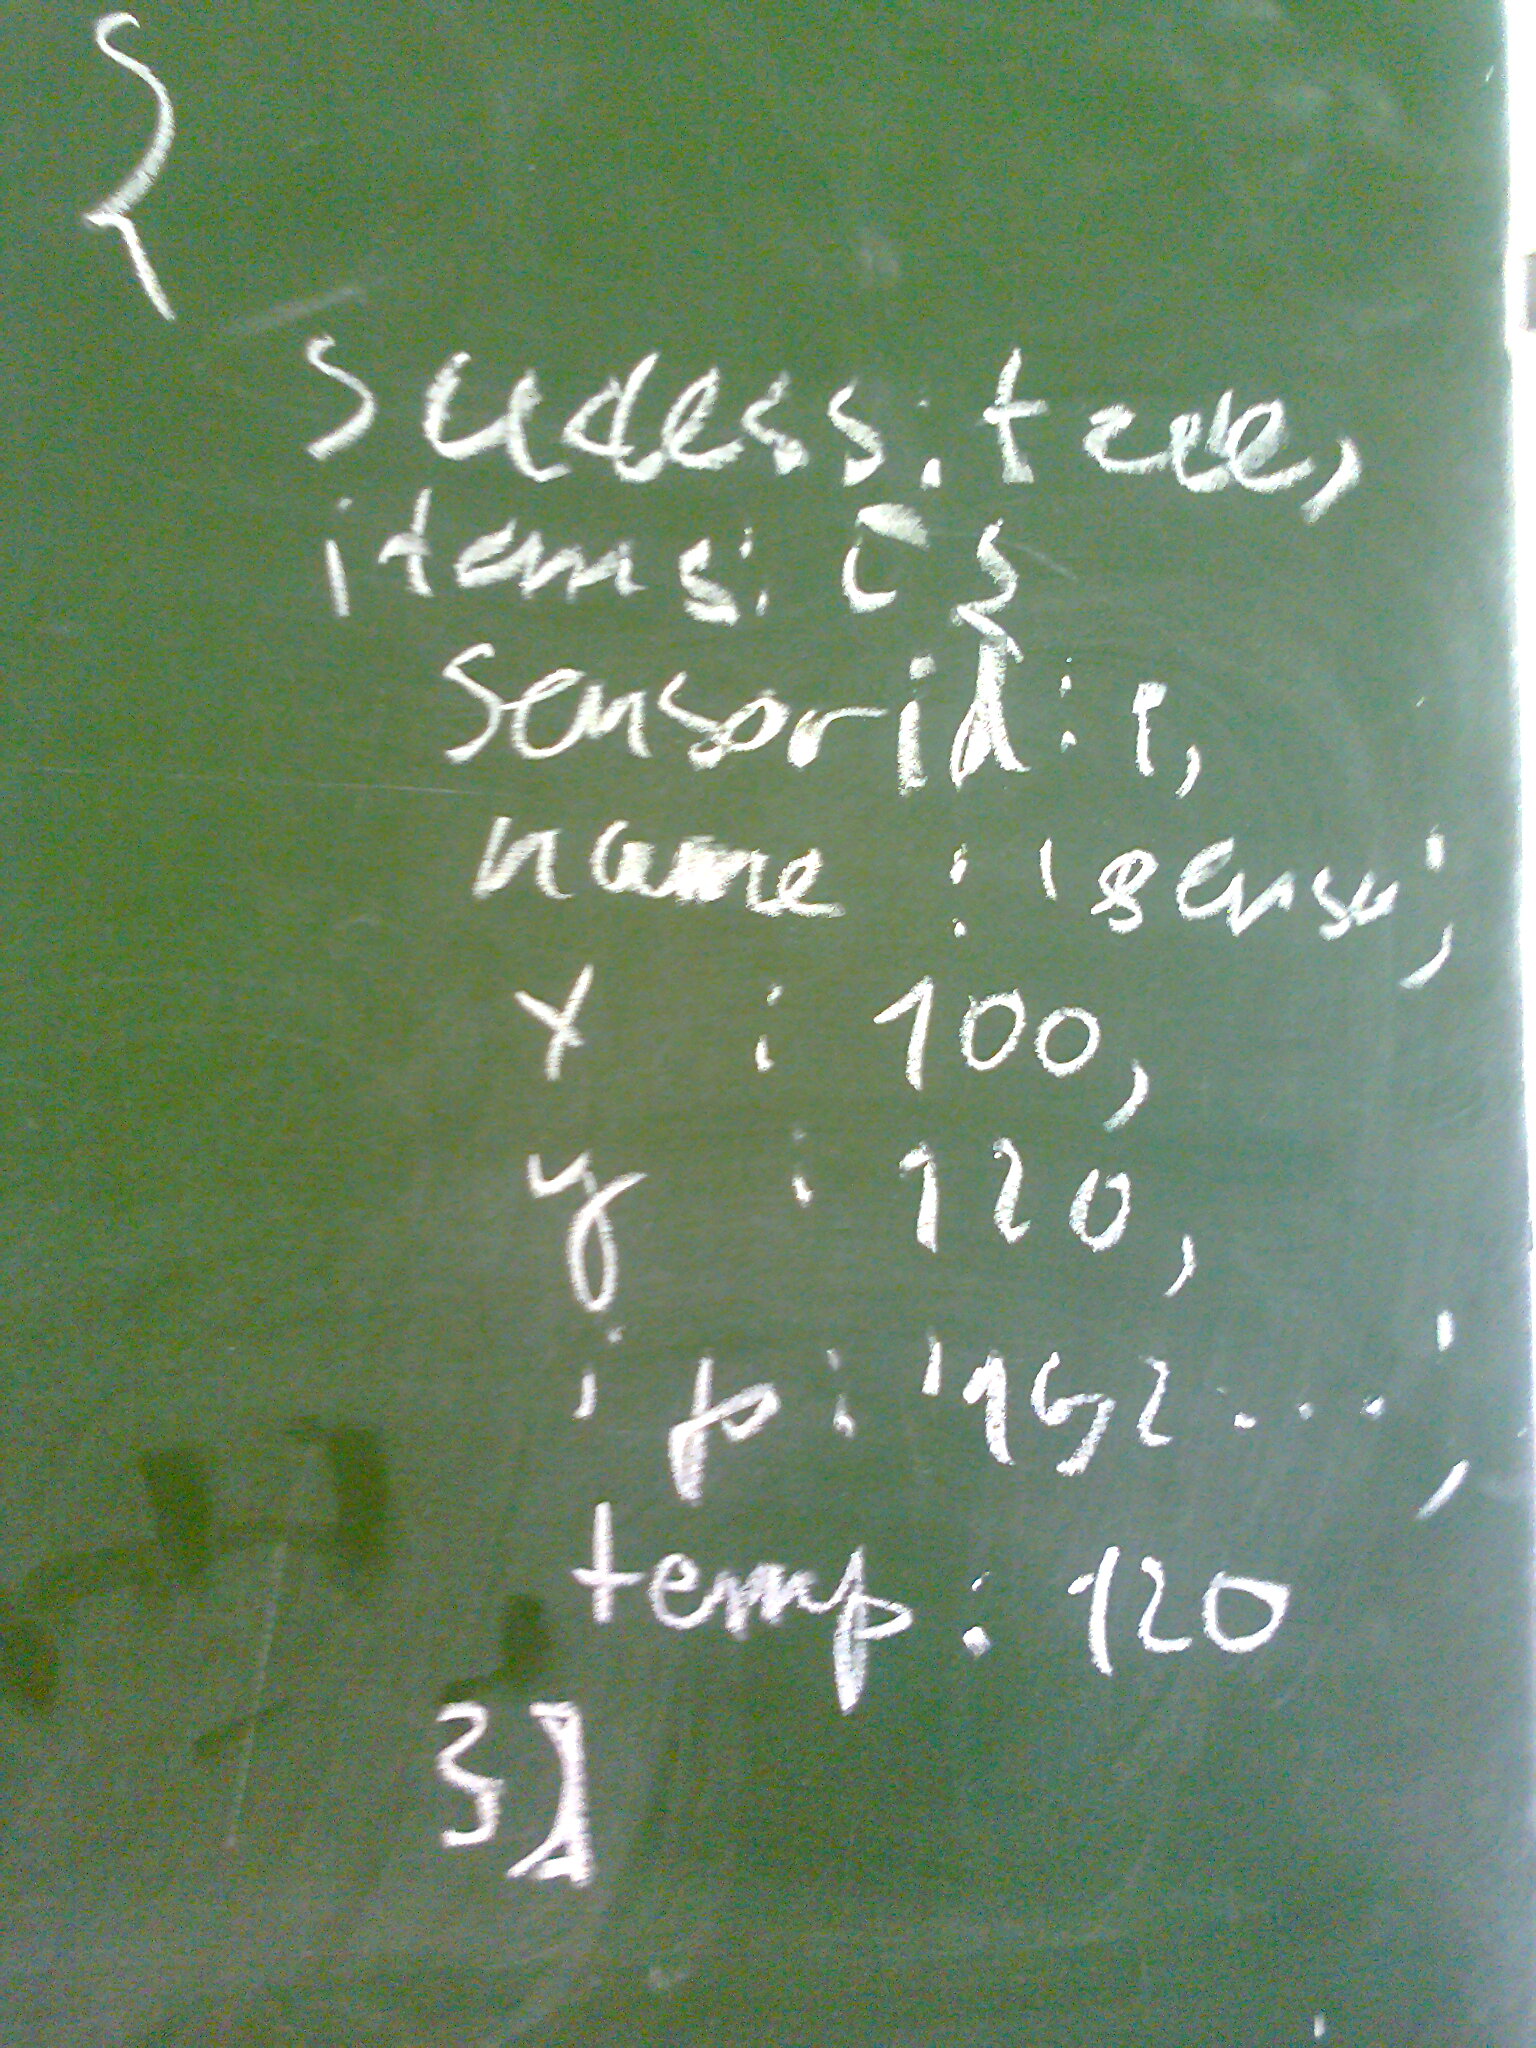 {
success: true,
items: [{
sensorid: 1,
name : 'senso',
x : 100,
y : 120,
ip: '192....',
temp: 120
}]